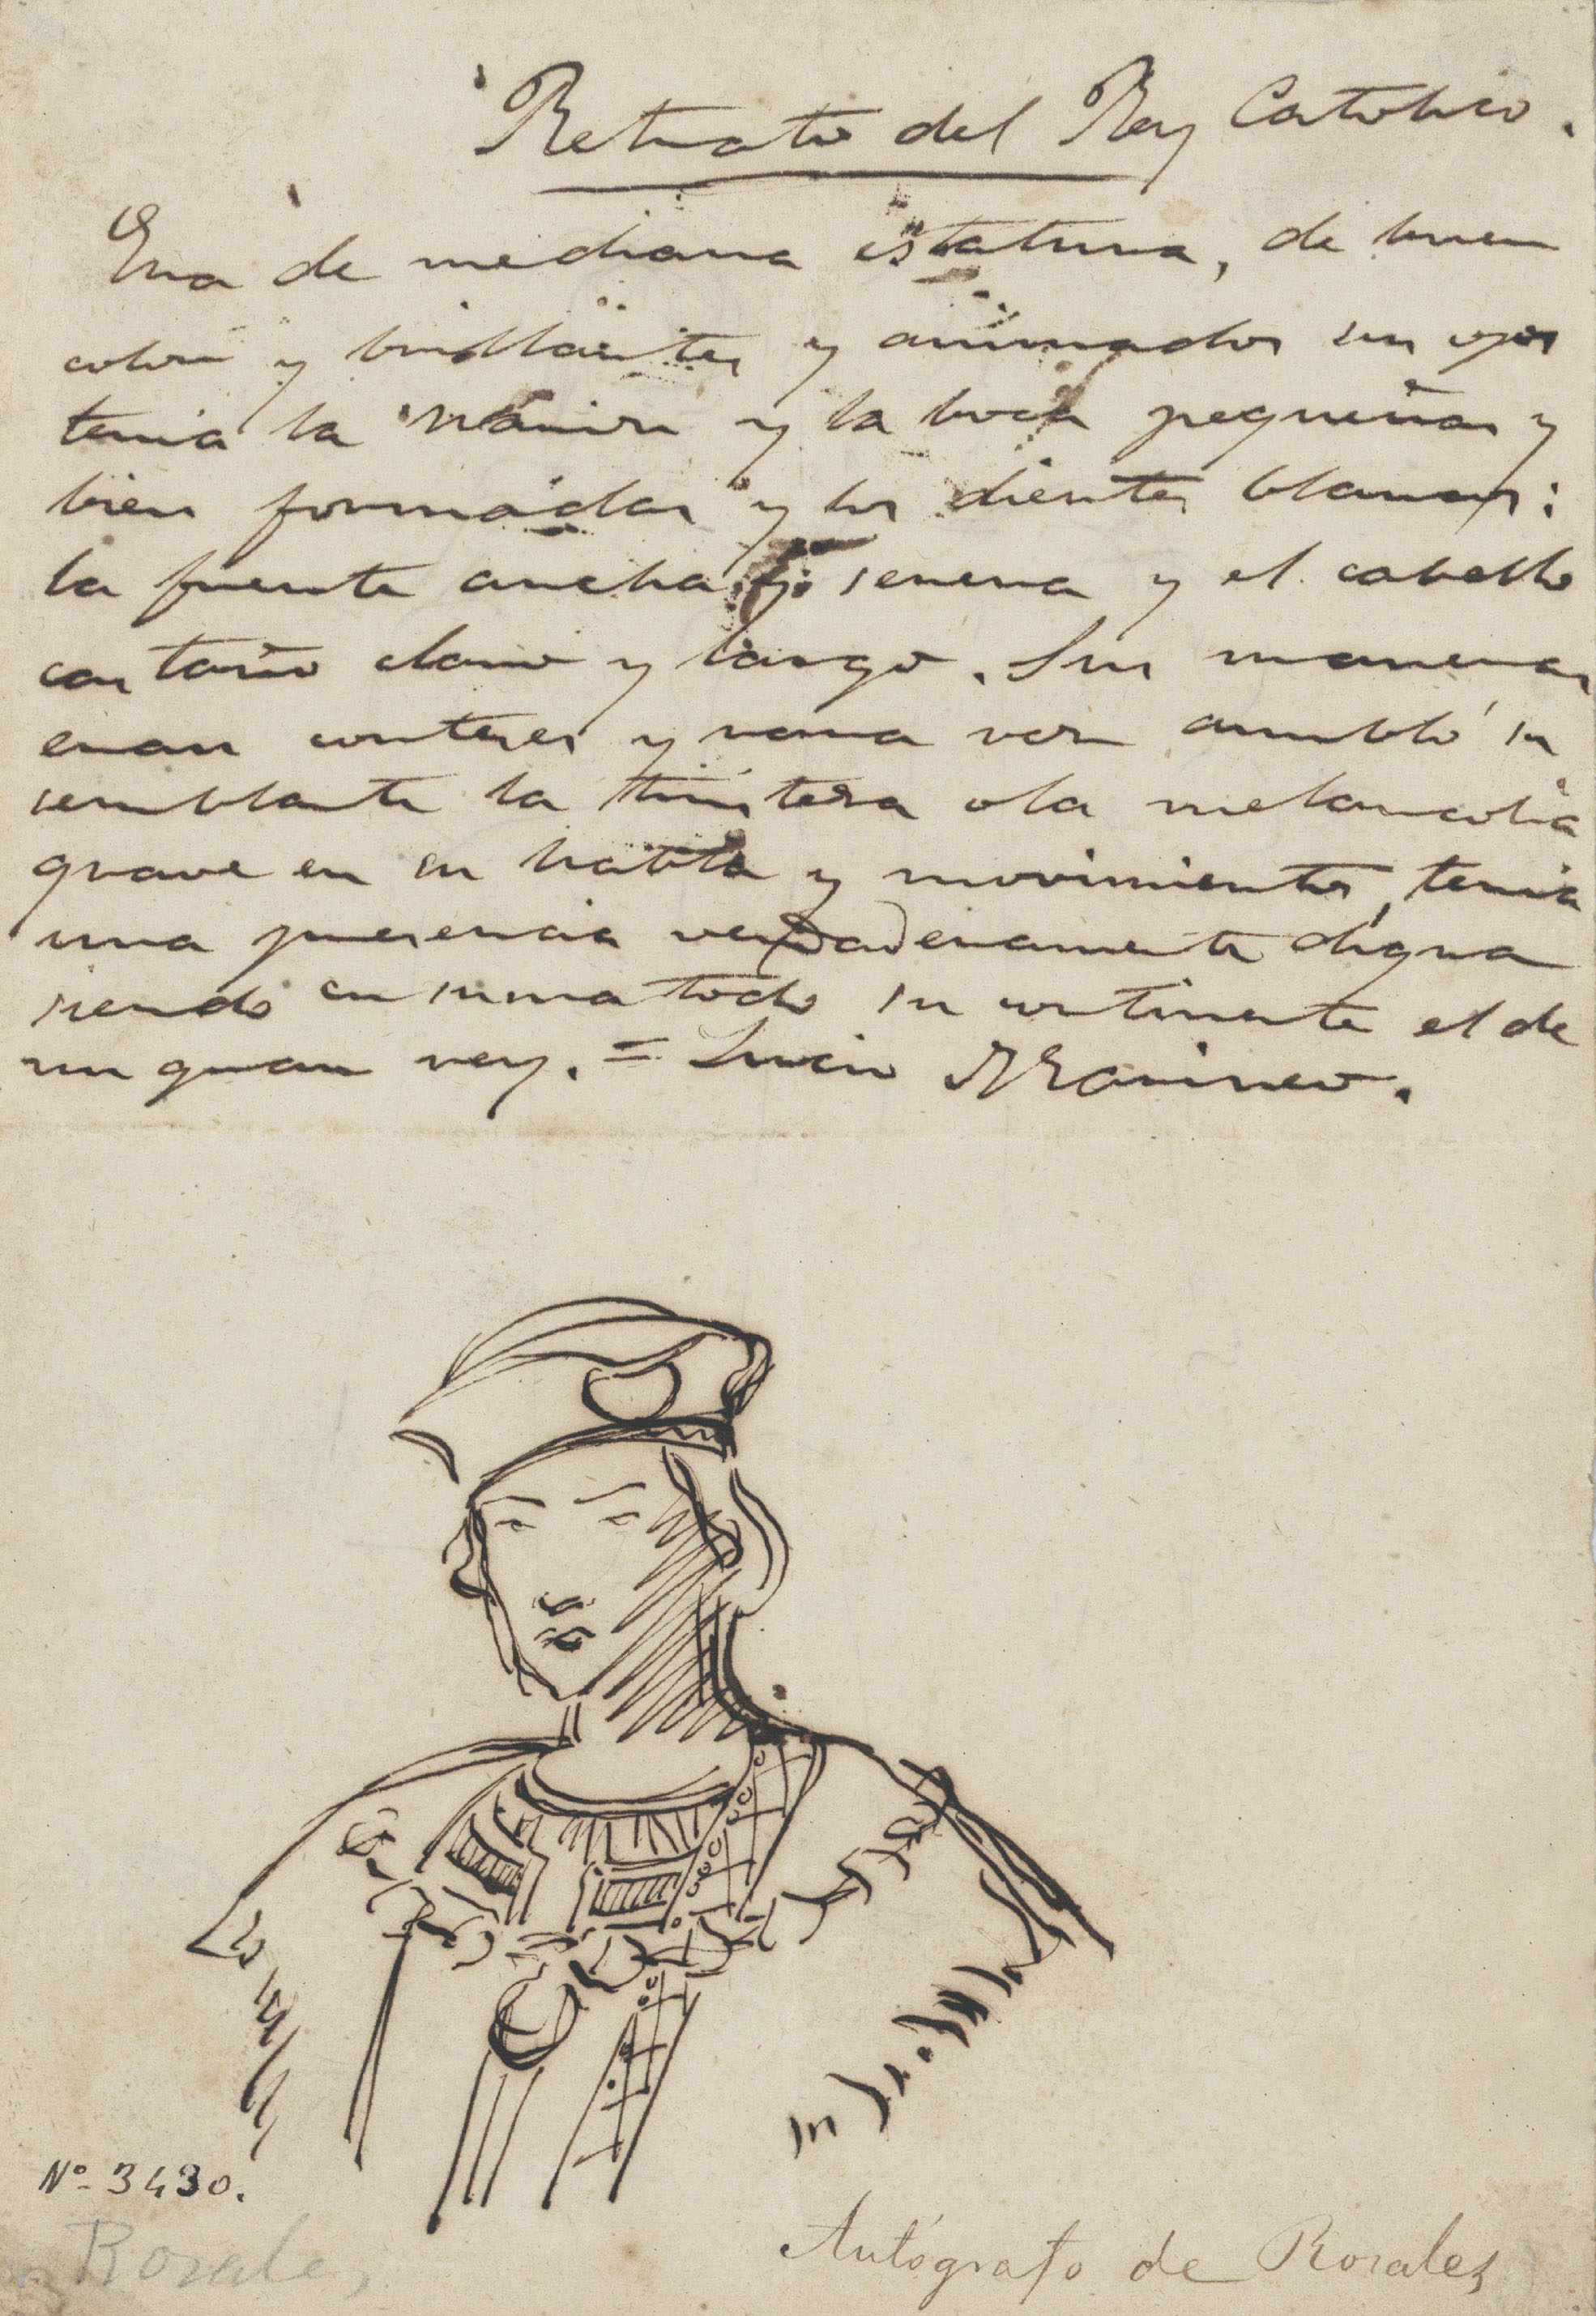 Retrato del Rey Catolico.
Era de mediana estatura, de buen
color y brillantes y animados sus ojos
tenia la nariz y la boca pequeñas y
bien formadas y los dientes blancos:
la frente ancha y serena y el cabello
castaño claro y largo. Sus maneras
eran corteses y rara vez anubló su
semblante la tristeza o la melancolia
grave en su habla y movimientos, tenia
una presencia verdaderamente digna
siendo en suma todo su continente el de
un gran rey. = Lucio Marineo.
Nº 3430.
Rosales
Autógrafo de Rosales